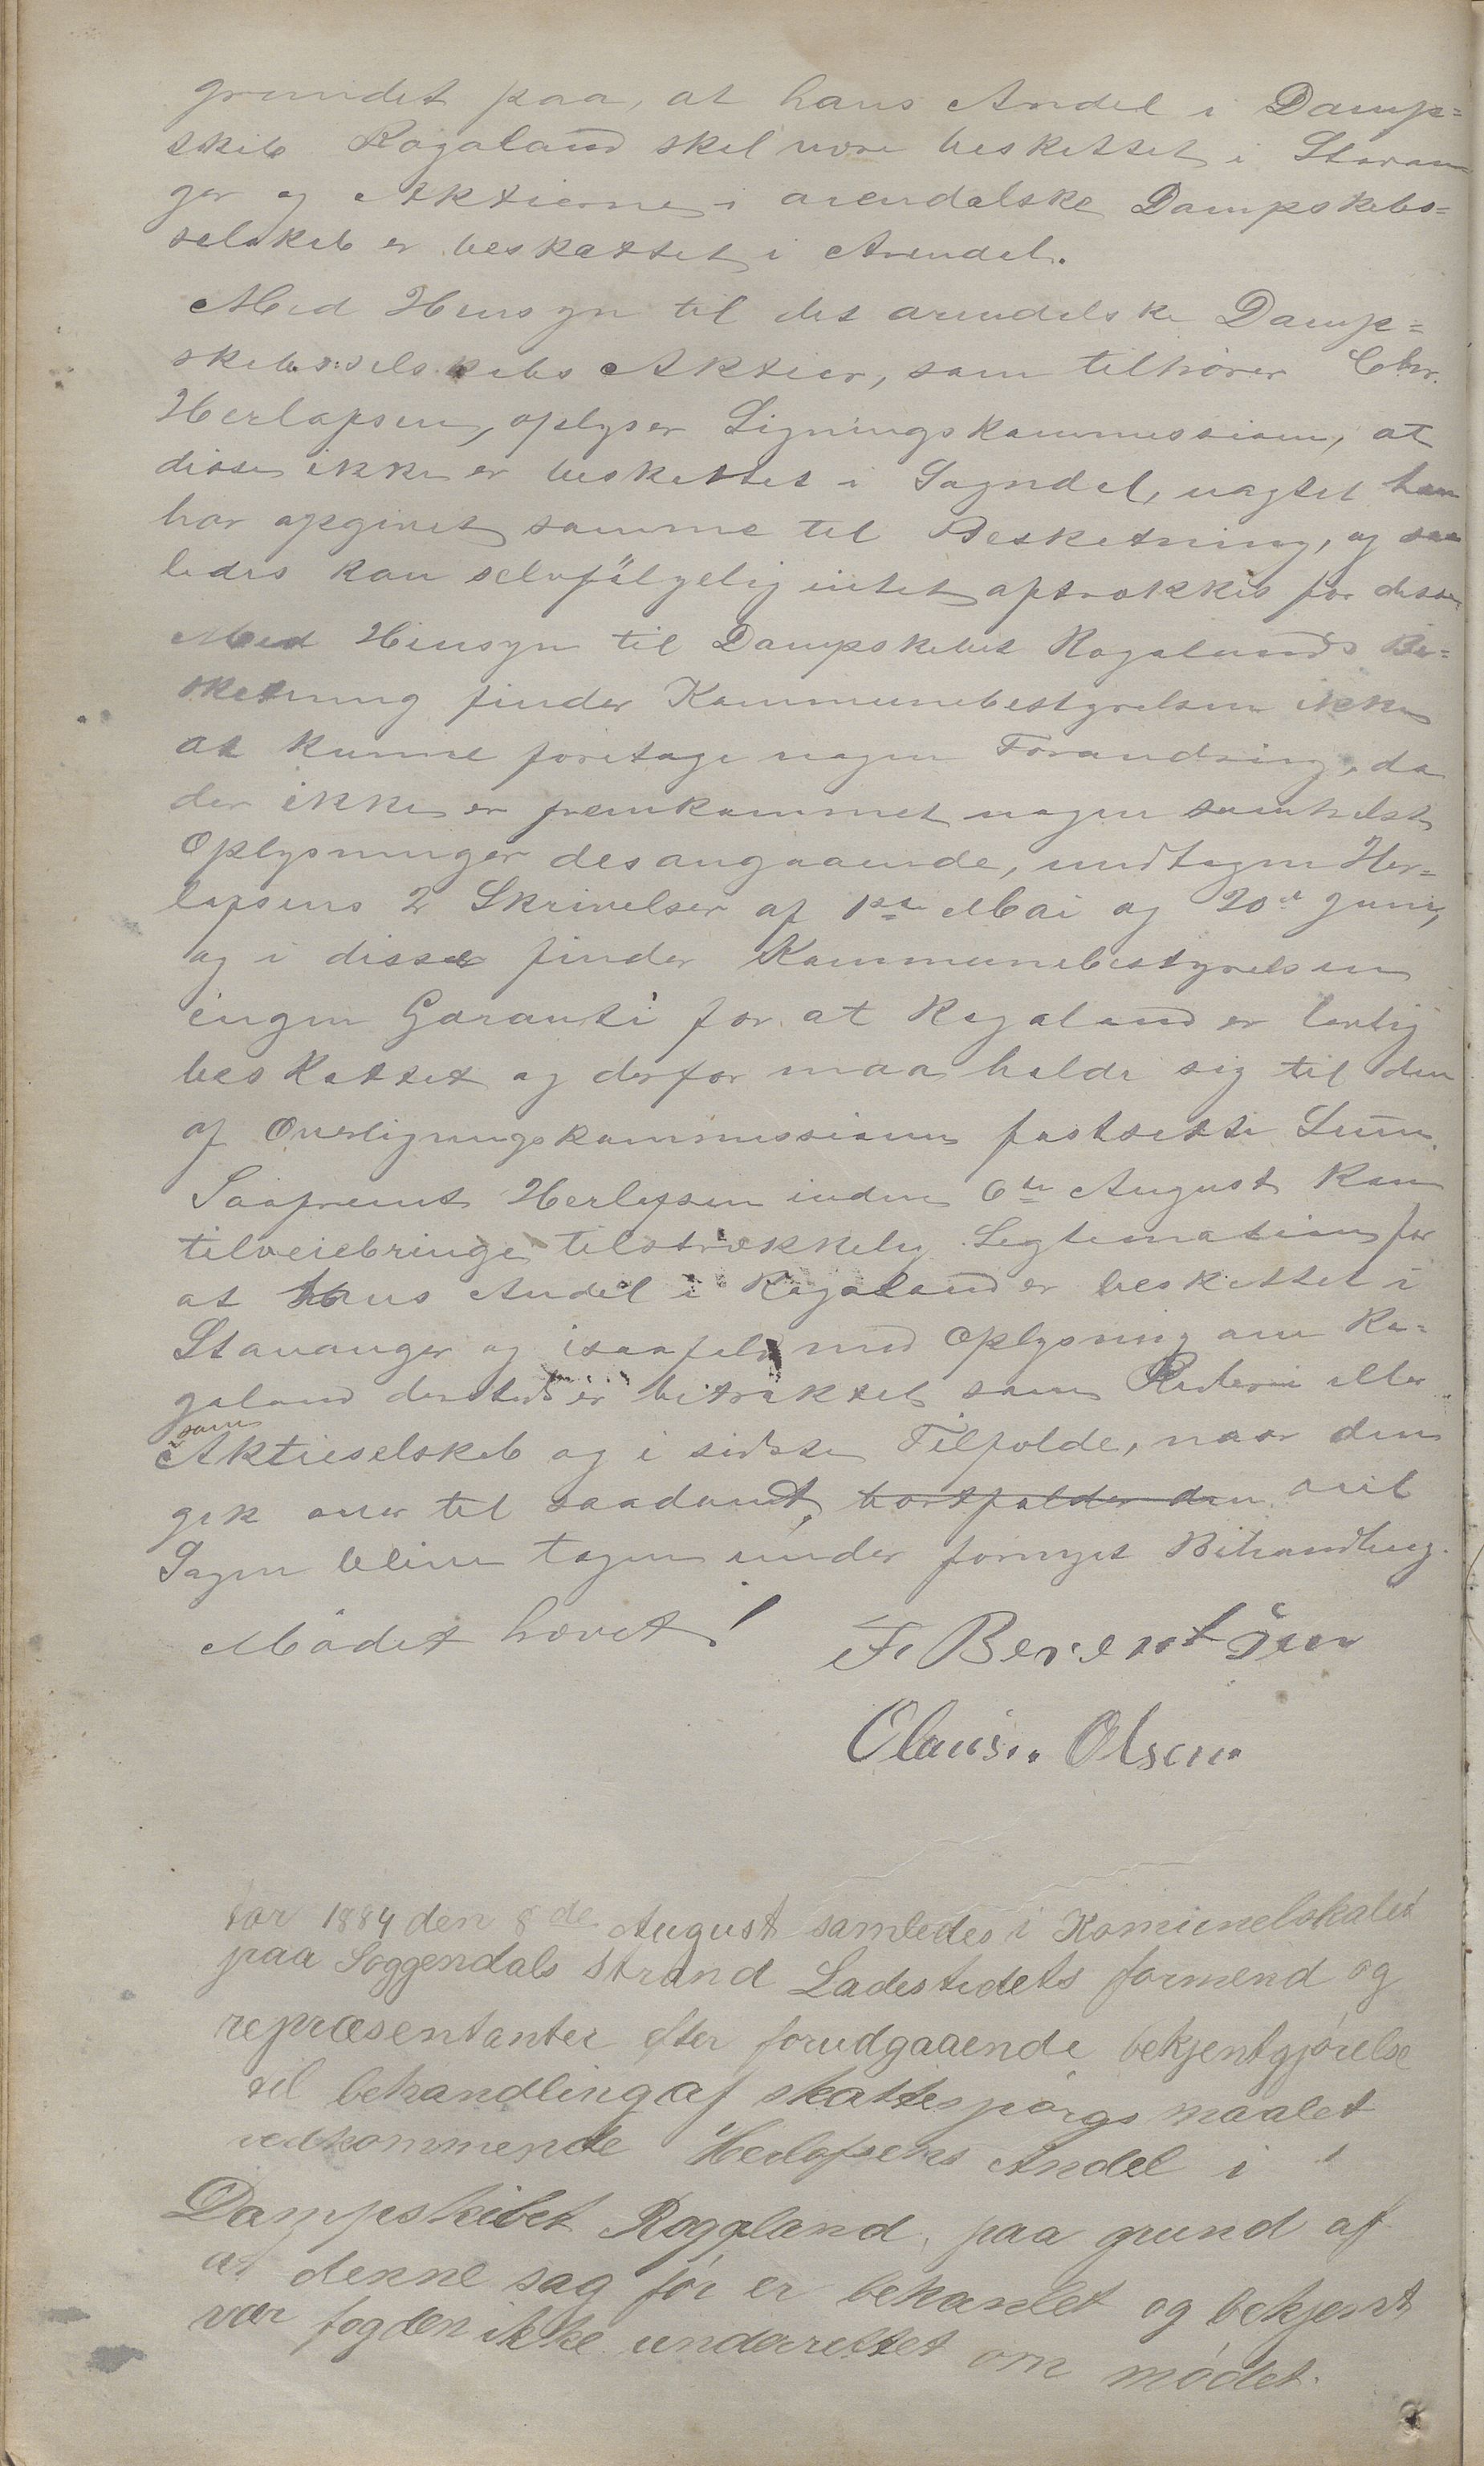 grundet paa, at hans Andel i Damp=
skib Rogaland skal være beskattet i Stavan
ger og Aktierne i arendalske Dampskibs=
selskab er beskattet i Arendal.
Med Hensyn til det arendalske Damp=
skibsselskabs Aktier, som tilhører Chr.
Herlofsen, oplyser Ligningskommissionen, at
disse ikke er beskattet i Sogndal, uagtet han
har opgivet samme til Beskatning, og saa
ledes kan selvfølgelig intet aftrækkes for disse
Med Hensyn til Dampskibet Rogalands Be=
skatning finder Kommunebestyrelsen ikke
at kunne foretage nogen Forandring, da
der ikke er fremkommet nogen somhelst
Oplysninger desangaaende, undtagen Her=
lofsens 2 Skrivelser af 1ste Mai og 20de Juni,
og i disse finder Kommunebestyrelsen
ingen Garanti for at Rogaland er lovlig
beskattet og derfor maa holde sig til den
af Overligningskommissionen fastsatte Sum.
Saafremt Herlofsen inden 6te August kan
tilveiebringe tilstrækkelig Legtimation for
at hans Andel i Rogaland er beskattet i
Stavanger og isaafeld med Oplysning om Ro=
galand dersteds er betraktet som Rederi eller
som
Aktieselskab og i sidste Tilfælde, naar den
gik over til saadant, bortfalder den vil
Sagen blive tagen under fornyet Behandling.
Mødet hævet!
F. Berentsen
Claus. Olsen.
Aar 1884 den 8de August samledes i Komunelokalet
paa Soggendals Strand Ladestedets formend og
repræsentanter efter forudgaaende bekjentgjørelse
til behandling af skattespørgsmaalet
vedkommende Herlofsens Andel i
Dampskibet Rogaland, paa grund af
at denne sag før er behanlet og bekjent
var fogden ikke underrettet om mødet.